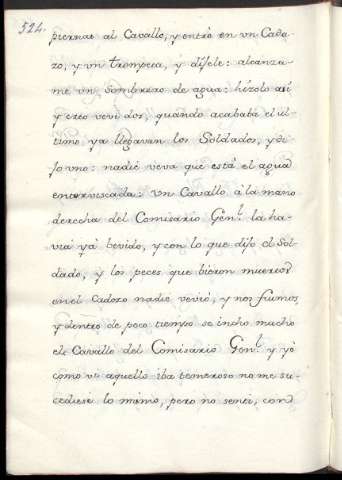 524.
piernas al Cavallo, y entro en un Cado-
zo, y un trompeta, y dijele: alcanza-
me un sombrero de agua: hizolo asi
y creo veví dos, quando acababa el ul-
timo ya llegavan los Soldados, y di-
jo uno: nadie veva que está el agua
enarviscada: un Cavallo á la mano
derecha del Comisario Gen.l la ha-
via ya bevido, y con lo que dijo el Sol-
dado, y los peces que bieron muertos
en el Cadozo nadie vevió, y nos fuimos,
y dentro de poco tiempo se incho mucho
el Cavallo del Comisario Gen.l y yo
como vi aquello iba temeroso no me su-
cediese lo mismo, pero no senti, cond